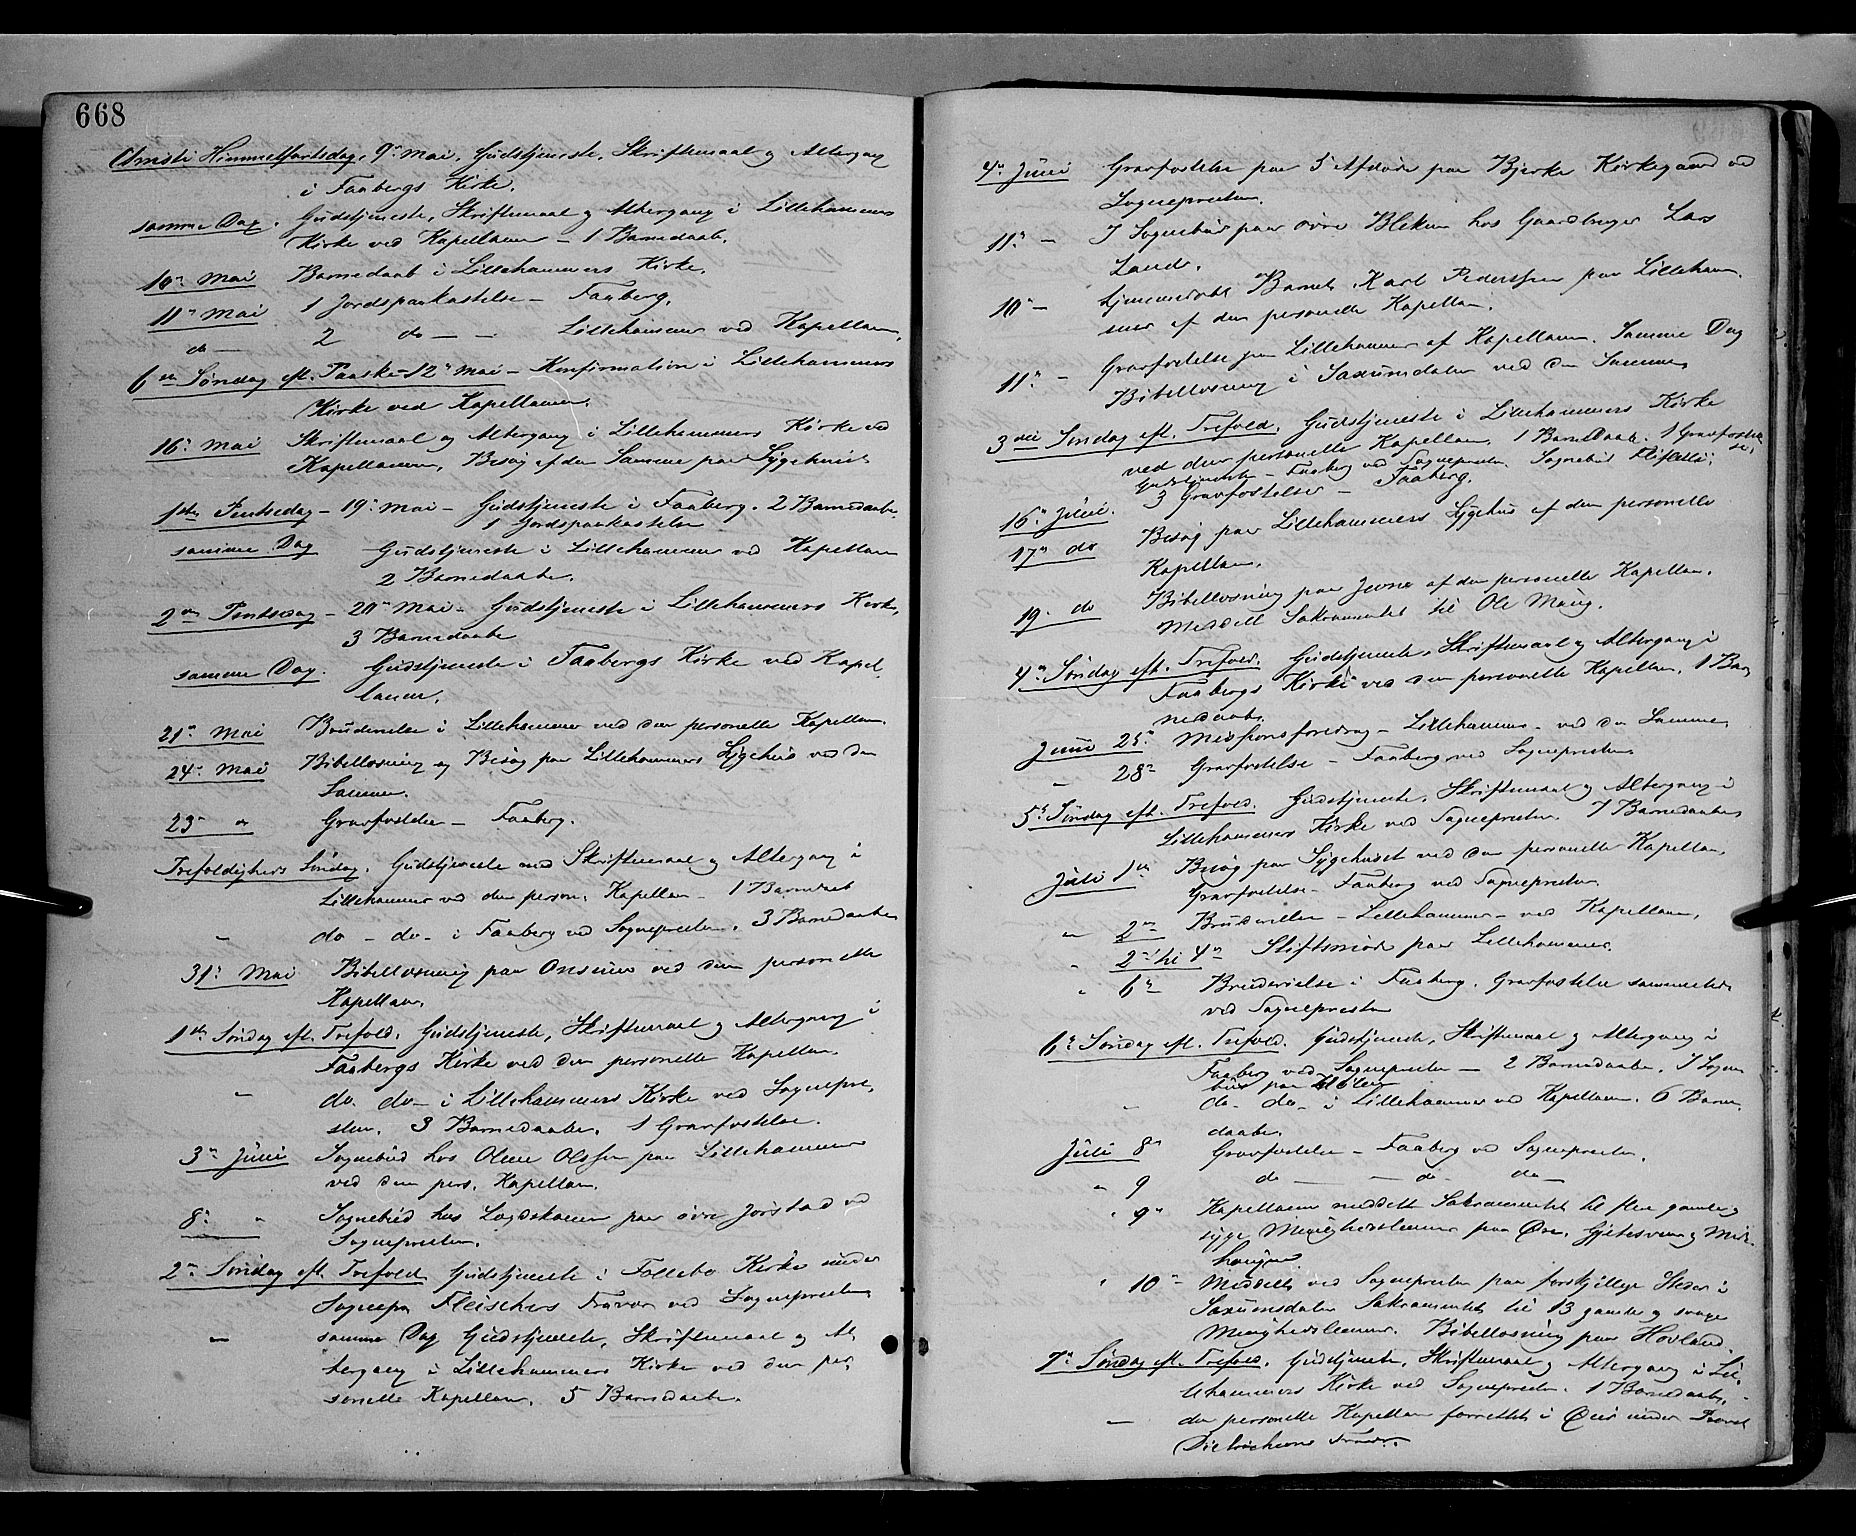 668
Christi Himmelfartsdag, 9de Mai, Gudstjeneste, Skriftemaal og Altergang
i Faabergs Kirke.
samme Dag. Gudstjeneste, Skriftemaal og Altergang i Lillehammers
Kirke ved Kapellanen – 1 Barnedaab.
10de Mai Barnedaab i Lillehammers Kirke.
11te Mai 1 Jordspaakastelse – Faaberg.
do – 2 do – – Lillehammer ved Kapellanen.
6te Søndag eft. Paaske – 12te Mai – Konfirmation i Lillehammers
Kirke ved Kapellanen.
16de Mai Skriftemaal og Altergang i Lillehammers Kirke ved
Kapellanen, Besøg af den Samme paa Sygehuset.
1ste Pintsedag – 19de Mai – Gudstjeneste i Faaberg. 2 Barnedaabe.
1 Jordspaakastelse
samme Dag Gudstjeneste i Lillehammer ved Kapellanen
2 Barnedaabe.
2den Pintsedag – 20de Mai – Gudstjeneste i Lillehammers Kirke,
3 Barnedaabe
samme Dag. Gudstjeneste i Faabergs Kirke ved Kapel-
lanen.
21de Mai Brudevielse i Lillehammer ved den personelle Kapellan.
24de Mai Bibellæsning og Besøg paa Lillehammers Sygehus ved den
Samme.
23de " Gravfæstelse – Faaberg.
Trefoldigheds Søndag. Gudstjeneste med Skriftemaal og Altergang i
Lillehammer ved den person. Kapellan – 1 Barnedaab
" do – do – i Faaberg ved Sognepresten. 3 Barnedaabe
31te Mai Bibellæsning paa Onsum ved den personelle
Kapellan.
1ste Søndag eft. Trefold. Gudstjeneste, Skriftemaal og Altergang i
Faabergs Kirke ved den personelle Kapellan.
" do. do – i Lillehammers Kirke ved Sognepre-
sten. 3 Barnedaabe. 1 Gravfæstelse.
3de Juni Sognebud hos Olsen paa Lillehammer
ved den pers. Kapellan.
8de " Sognebud hos paa øvre Jørstad ved
Sognepresten.
2den Søndag eft. Trefold. Gudstjeneste i Follebo Kirke under
Sognepr. Fleischers Fravær ved Sognepresten
– samme Dag Gudstjeneste, Skriftemaal og Al-
tergang i Lillehammers Kirke ved den per-
sonelle Kapellan. 5 Barnedaabe.
4de Juni Gravfæstelse paa 5 Afdøde paa Bjerke Kirkegaard ved
Sognepresten.
11te – I Sognebud paa øvre Bleken hos Gaardbruger Lars
10de – Hjemmedøbt Barnet Karl Pederssen paa Lilleham-
mer af den personelle Kapellan.
11te – Gravfæstelse paa Lillehammer af Kapellanen. Samme Dag
Bibellæsning i Saxumdalen ved den Samme
3die Søndag eft. Trefold. Gudstjeneste i Lillehammers Kirke
ved den personelle Kapellan. 1 BarneDaab. 1 Gravfæstel-
se.
Gudstjeneste – Faaberg ved Sognepresten. Sognebud
16de Juni. 3 Gravfæstelser – Faaberg.
17de do Besøg paa Lillehammers Sygehus af den personelle
Kapellan.
19de do Bibellæsning paa Jevne af den personelle Kapellan.
Meddelt Sakramentet til Ole
4de Søndag eft. Trefold. Gudstjeneste, Skriftemaal og Altergang i
Faabergs Kirke ved den personelle Kapellan. 1 Bar-
nedaab.
Juni 25de Missionsforedrag – Lillehammer – ved den Samme
" 28de Gravfæstelse – Faaberg ved Sognepresten.
5te Søndag eft. Trefold. Gudstjeneste, Skriftemaal og Altergang i
Lillehammers Kirke ved Sognepresten 7 Barnedaabe
Juli 1ste Besøg paa Sygehuset ved den personelle Kapellan.
Gravfæstelse – Faaberg ved Sognepresten.
" 2den Brudevielse – Lillehammer – ved Kapellanen.
" 2den til 4de Stiftsmøde paa Lillehammer.
" 6te Brudevielse i Faaberg. Gravfæstelse sammesteds
ved Sognepresten
6te Søndag eft. Trefold. Gudstjeneste, Skriftemaal og Altergang i
Faaberg ved Sognepresten – 2 Barnedaabe. 1 Sogne-
bud paa
" do – do – i Lillehammer ved Kapellanen. 6 Barne-
daabe.
Juli 8de Gravfæstelse – Faaberg ved Sognepresten.
" 9 do – – do – do –
" 9de Kapellanen meddelt Sakramentet til flere gamle og
syge Menighedslemmer paa
" 10de Meddelt ved Sognepresten paa forskjellige Steder i
Saxumsdalen Sakramentet til 13 gamle og svage
Menighedslemmer. Bibellæsning paa Hovland.
7de Søndag eft. Trefold. Gudstjeneste, Skriftemaal og Altergang i Lil-
lehammers Kirke ved Sognepresten. 1 Barnedaab.
– den personelle Kapellan forrettet i Øier under Provst
Dietrichsons Fravær.